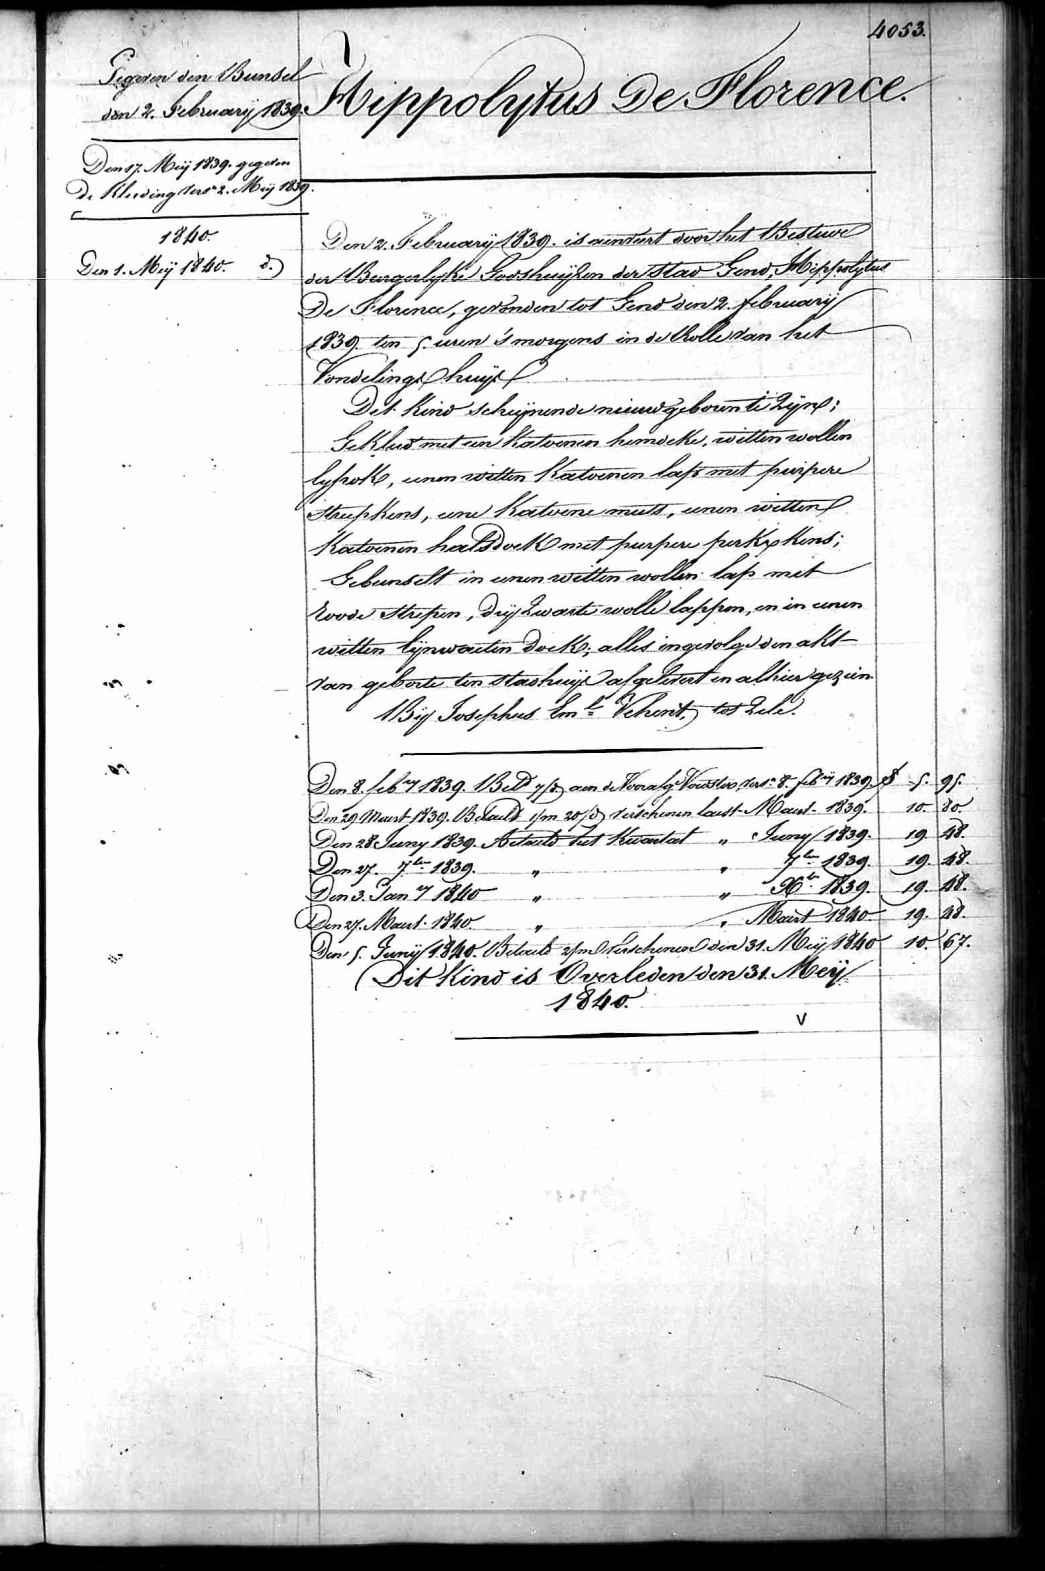 4053.
Hippolytus De Florence.
Gegeven den Bunsel
den 2. Februarij 1839.
Den 17. Meij 1839. gegeven
De Kleeding vers.n 2. Meij 1839.
1840.
Den 1. Meij 1840. d.o
Den 2. Februarij 1839. is aenveert door het Bestuur
der Burgerlyke Godshuijsen der stad Gend, Hippolytus
De Florence, gevonden tot Gend den 2. februarij
1839. ten 5. uren 's morgens in de Rolle van het
Vondelings huijs
Dit Kind schijnende nieuwgeboren te zijn;
Gekleed met een Katoenen hemdeke, witten wollen
lyfrok, eenen witten Katoenen lap met purpere
streepkens, eene Katoene muts, eenen witten
Katoenen halsdoek met purpere perkxkens;
Gebunselt in eenen witten wollen lap met
roode strepen, drij zwarte wolle lappen, en in eenen
witten lijnwaeten doek; alles ingevolge den akt
van geborte ten stadhuijse afgelevert en alhier gezien.
Bij Josephus Em.l Vehent, tot Zele.
Den 8. feb.ry 1839. Bet.d 7/m aen de Vooralg. Voedster vers.n 8. feb.ry 1839. f 5. 95.
Den 29 Maert 1839. Betaeld 1/m 20/d verschenen laest Maert 1839. 10. 80.
Den 28 Juny 1839. Betaeld het Kwartael " Juny 1839. 19. 48.
Den 27. 7ber 1839. " " 7ber 1839. 19. 48.
Den 3. Jan.ry 1840 " " Xber 1839. 19. 48.
Den 27. Maert 1840. " " Maert 1840. 19. 48.
Den 5. Junij 1840. Betaeld 2/m verschenen den 31. Meij 1840 10. 67.
Dit Kind is Overleden den 31. Meij
1840.
V